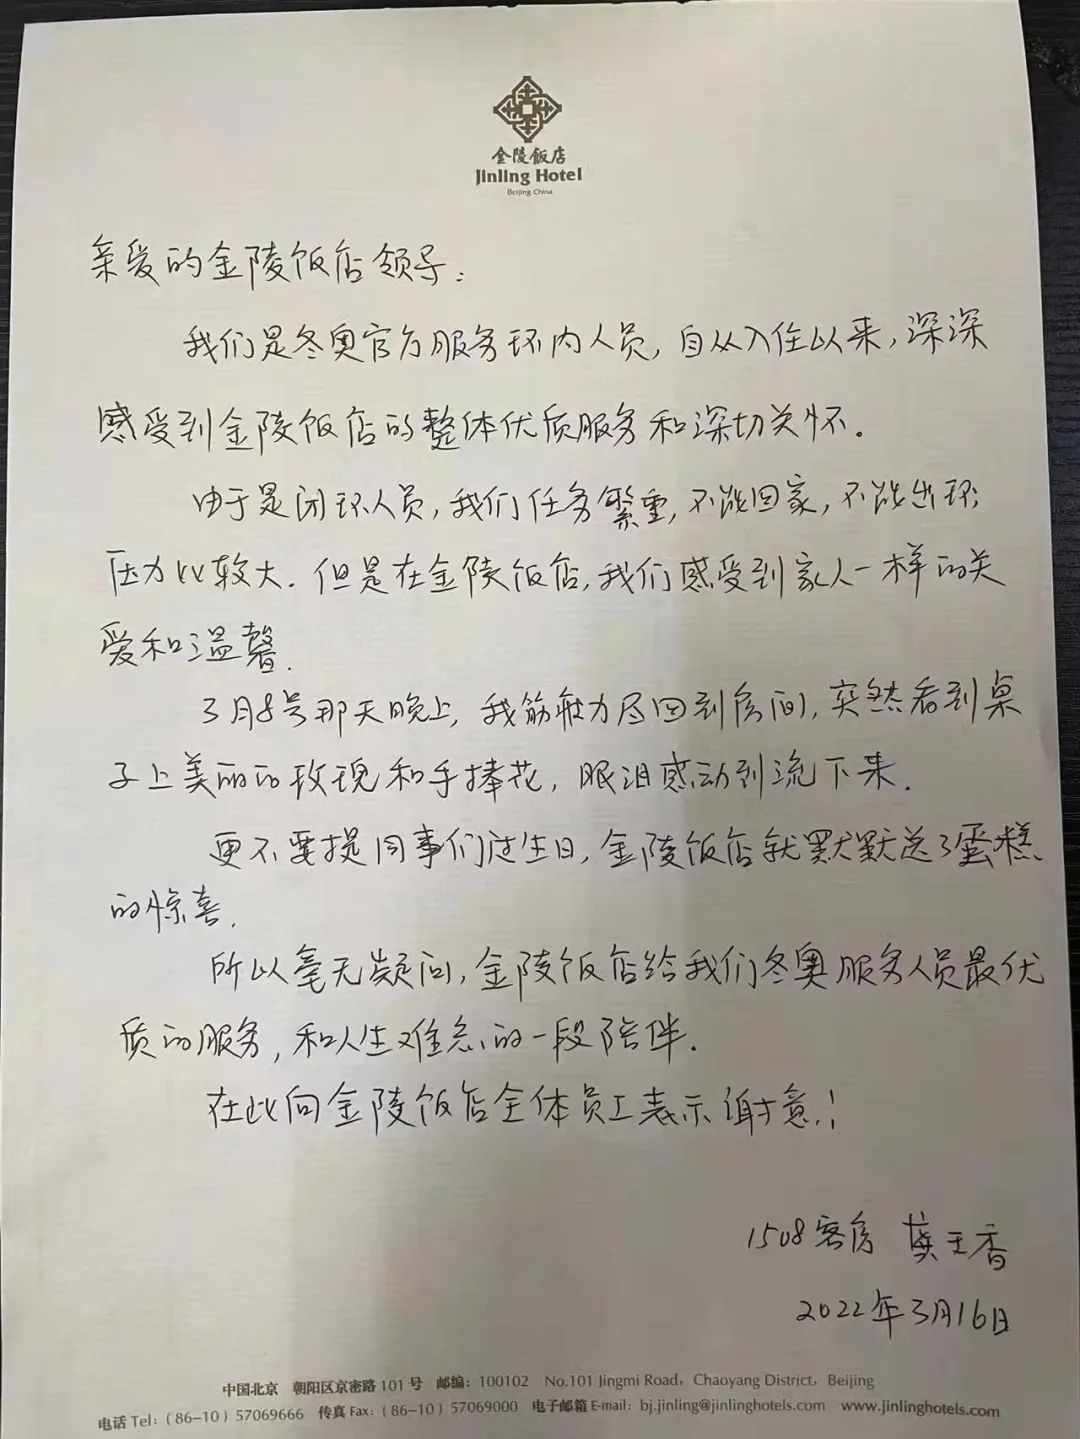 金陵飯店
Jinling Hotel
Beijing China
亲爱的金陵饭店领导：
我们是冬奥官方服务环内人员，自从入住以来，深深
感受到金陵饭店的整体优质服务和深切关怀。
由于是闭环人员，我们任务繁重，不能回家，不能出环，
压力比较大．但是在金陵饭店，我们感受到家人一样的关
爱和温馨．
3月8号那天晚上，我筋疲力尽回到房间，突然看到桌
子上美丽的玫瑰和手捧花，眼泪感动到流下来．
更不要提同事们过生日，金陵饭店就默默送了蛋糕
的惊喜．
所以毫无疑问，金陵饭店给我们冬奥服务人员最优
质的服务，和人生难忘的一段陪伴．
在此向金陵饭店全体员工表示谢意！
1508客房 王香
2022年3月16日
中国北京 朝阳区京密路101号 邮编：100102 No.101 Jingmi Road，Chaoyang District，Beijing
电话 Tel：(86-10) 57069666 传真 Fax：(86-10) 57069000 电子邮箱 E-mail：bj.jinling@jinlinghotels.com www.jinlinghotels.com